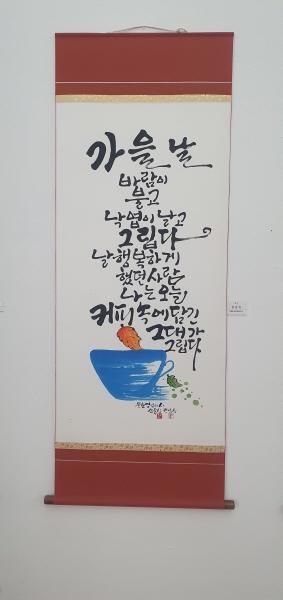 가을 날
바람이
불고
낙엽이 날고
그립다
날 행복하게
했던 사람
나는 오늘
커피 속에 담긴
그대가
그립다